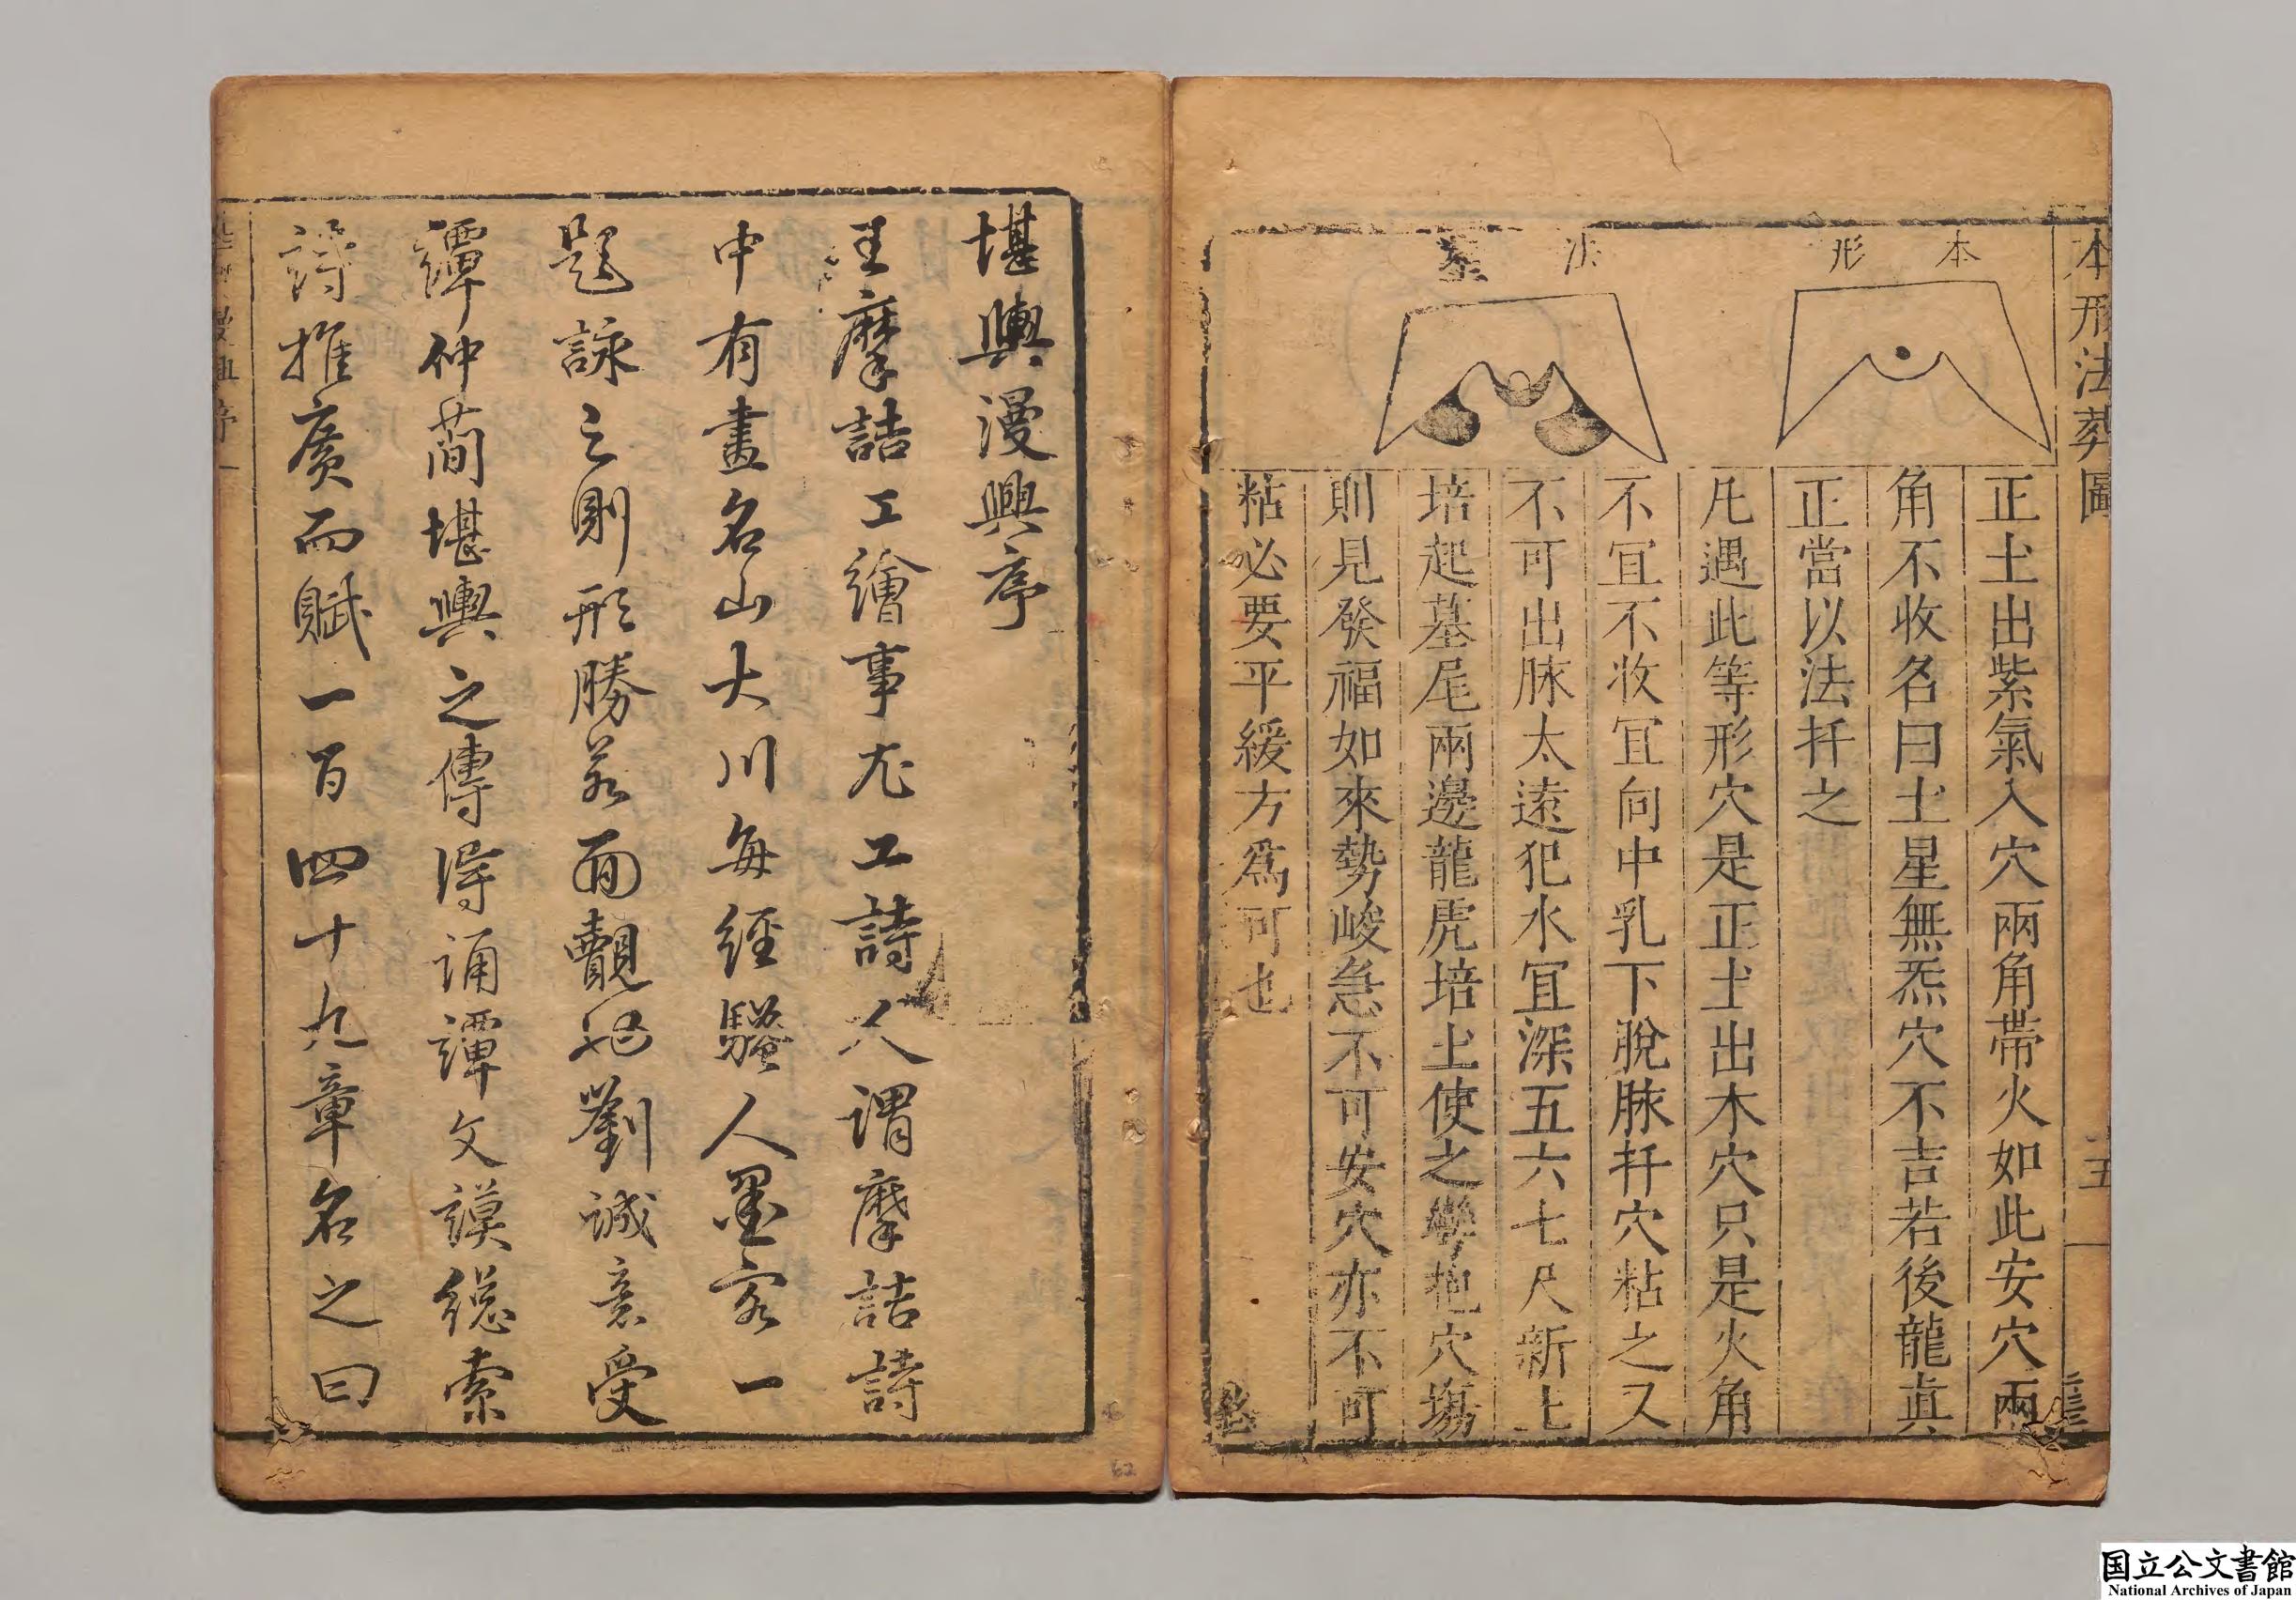 本形法葬圖
五
本形
法葬
正土出紫氣入穴兩角帶火如此安穴兩
角不收名曰土星無炁穴不吉若後龍真
正當以法扦之
凢遇此等形穴是正土出木穴只是火角
不宜不收宜向中乳下脫脉扦穴粘之又
不可出脉太遠犯水宜深五六七尺新上
培起墓尾兩邊龍虎培土使之彎抱穴塲
則見發福如來勢峻急不可安穴亦不可
粘必要平緩方爲可也
堪輿漫興序
王摩詰工繪事尤工詩人謂摩詰詩
中有畫名山大川每經騷人墨客一
題詠之則形勝若面覩也劉誠意受
譚仲蕳堪輿之傳得誦譚文謨緦索
詩推廣而賦一百四十九章名之曰
堪輿漫興序 一
62
国立公文書館
National Archives of Japan